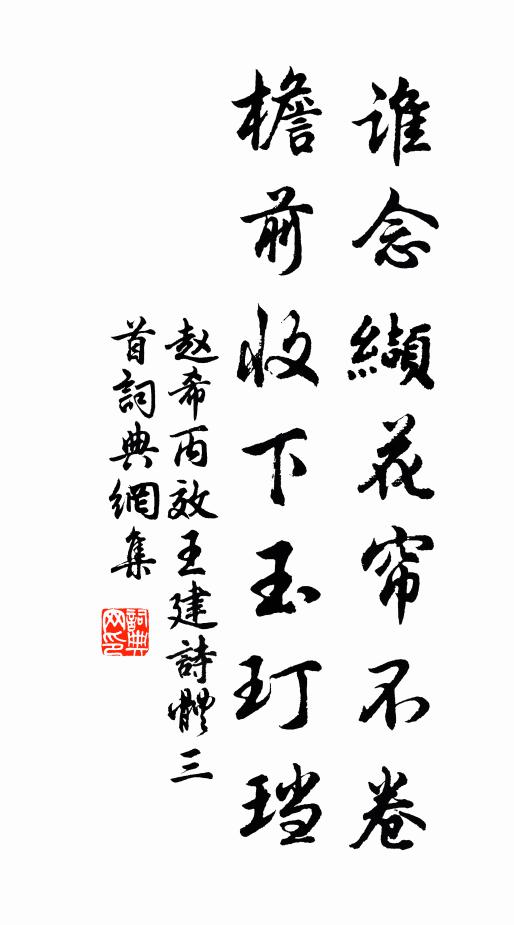 谁念缬花帘不卷
檐前收下玉玎珰
赵希丙效王建詩體三
首詞典網集
詞典
网印